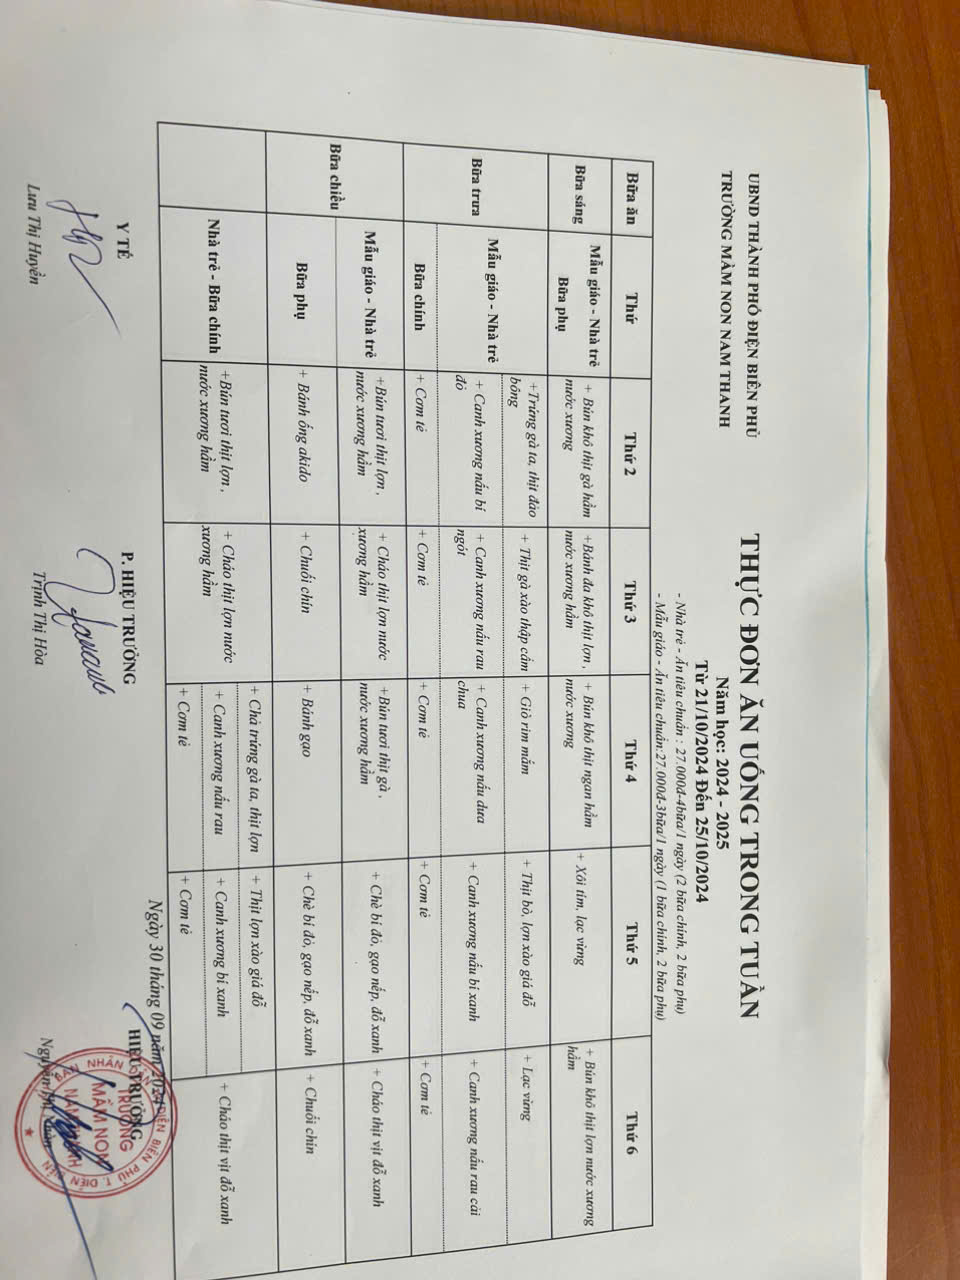 UBND THÀNH PHỐ ĐIỆN BIÊN PHỦ
TRƯỜNG MẦM NON NAM THANH
THỰC ĐƠN ĂN UỐNG TRONG TUẦN
Năm học: 2024 - 2025
Từ 21/10/2024 Đến 25/10/2024
- Nhà trẻ - Ăn tiêu chuẩn : 27.000đ-4bữa/1 ngày (2 bữa chính, 2 bữa phụ)
- Mẫu giáo - Ăn tiêu chuẩn:27.000đ-3bữa/1 ngày (1 bữa chính, 2 bữa phụ)
Bữa ăn
Thứ
Thứ 2
Thứ 3
Thứ 4
Thứ 5
Thứ 6
Bữa sáng
Mẫu giáo - Nhà trẻ
Bữa phụ
+ Bún khô thịt gà hầm
nước xương
+Bánh đa khô thịt lợn ,
nước xương hầm
+ Bún khô thịt ngan hầm
nước xương
+ Xôi tím, lạc vừng
+ Bún khô thịt lợn nước xương
hầm
Bữa trưa
Mẫu giáo - Nhà trẻ
Bữa chính
+Trứng gà ta, thịt đảo
bông
+ Thịt gà xào thập cẩm
+ Giò rim mắm
+ Thịt bò, lợn xào giá đỗ
+ Lạc vừng
+ Canh xương nấu bí
đỏ
+ Canh xương nấu rau
ngót
+ Canh xương nấu dưa
chua
+ Canh xương nấu bí xanh
+ Canh xương nấu rau cải
+ Cơm tẻ
+ Cơm tẻ
+ Cơm tẻ
+ Cơm tẻ
+ Cơm tẻ
Bữa chiều
Mẫu giáo - Nhà trẻ
+Bún tươi thịt lợn ,
nước xương hầm
+ Cháo thịt lợn nước
xương hầm
+Bún tươi thịt gà ,
nước xương hầm
+ Chè bí đỏ, gạo nếp, đỗ xanh
+ Cháo thịt vịt đỗ xanh
Bữa phụ
+ Bánh ống akido
+ Chuối chín
+ Bánh gạo
+ Chè bí đỏ, gạo nếp, đỗ xanh
+ Chuối chín
Nhà trẻ - Bữa chính
+Bún tươi thịt lợn ,
nước xương hầm
+ Cháo thịt lợn nước
xương hầm
+ Chả trứng gà ta, thịt lợn
+ Thịt lợn xào giá đỗ
+ Cháo thịt vịt đỗ xanh
+ Canh xương nấu rau
+ Canh xương bí xanh
+ Cơm tẻ
+ Cơm tẻ
Ngày 30 tháng 09 năm 2024
Y TẾ
P. HIỆU TRƯỞNG
HIỆU TRƯỞNG
TRƯỜNG
MẦM NON
Lưu Thị Huyền
Trịnh Thị Hòa